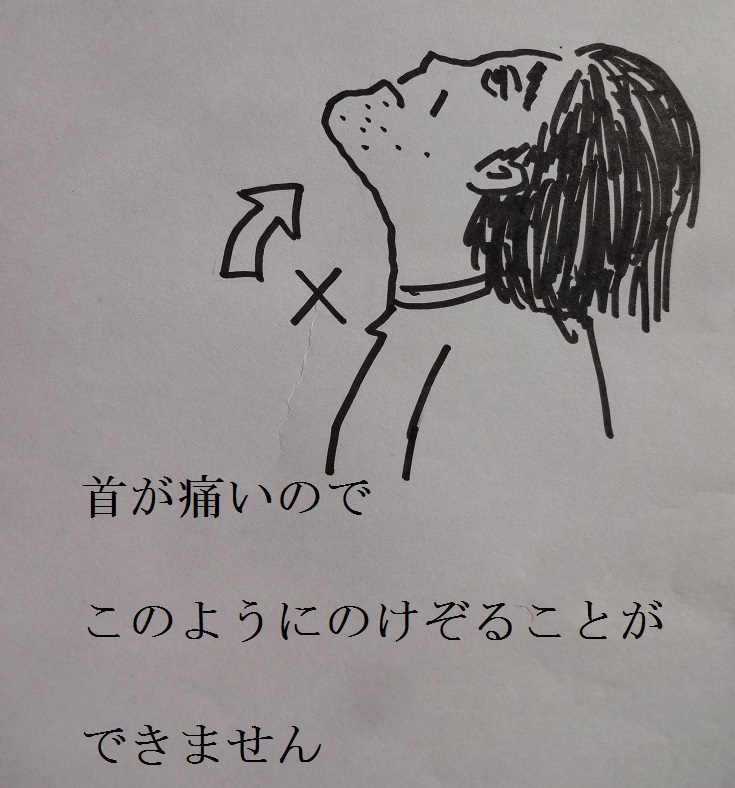 首が痛いので
このようにのけぞることが
できません